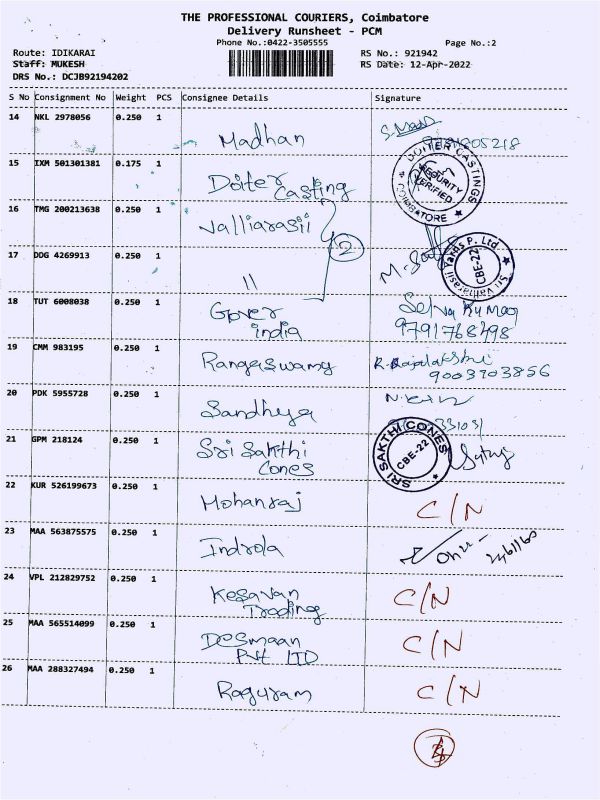 THE PROFESSIONAL COURIERS, Coimbatore
Delivery Runsheet - PCM
Phone No.:0422-3505555 Page No.:2
Route: IDIKARAI RS No.: 921942
Staff: MUKESH RS Date: 12-Apr-2022
DRS No.: DCJB92194202
S No Consignment No Weight PCS Consignee Details Signature
14 NKL 2978056 0.250 1 Madhan
15 IXM 501301381 0.175 1 Doiter Casting
DOITER CASTINGS COIMBATORE SECURITY VERIFIED
16 TMG 200213638 0.250 1 Valliarasii
2
17 DDG 4269913 0.250 1 11
Yards P. Ltd CBE-22
18 TUT 6008038 0.250 1 Gover india Selva Kumar
9791768498
19 CMM 983195 0.250 1 Rangaswamy R. Rajalakshmi
9003703856
20 PDK 5955728 0.250 1 Sandhya
21 GPM 218124 0.250 1 Sri Sakthi Cones
SRI SAKTHI CONES CBE-22
22 KUR 526199673 0.250 1 Mohanraj C/N
23 MAA 563875575 0.250 1 Indrola
24 VPL 212829752 0.250 1 Kesavan Trading C/N
25 MAA 565514099 0.250 1 Desmaan Pvt LTD C/N
26 MAA 288327494 0.250 1 Raguram C/N